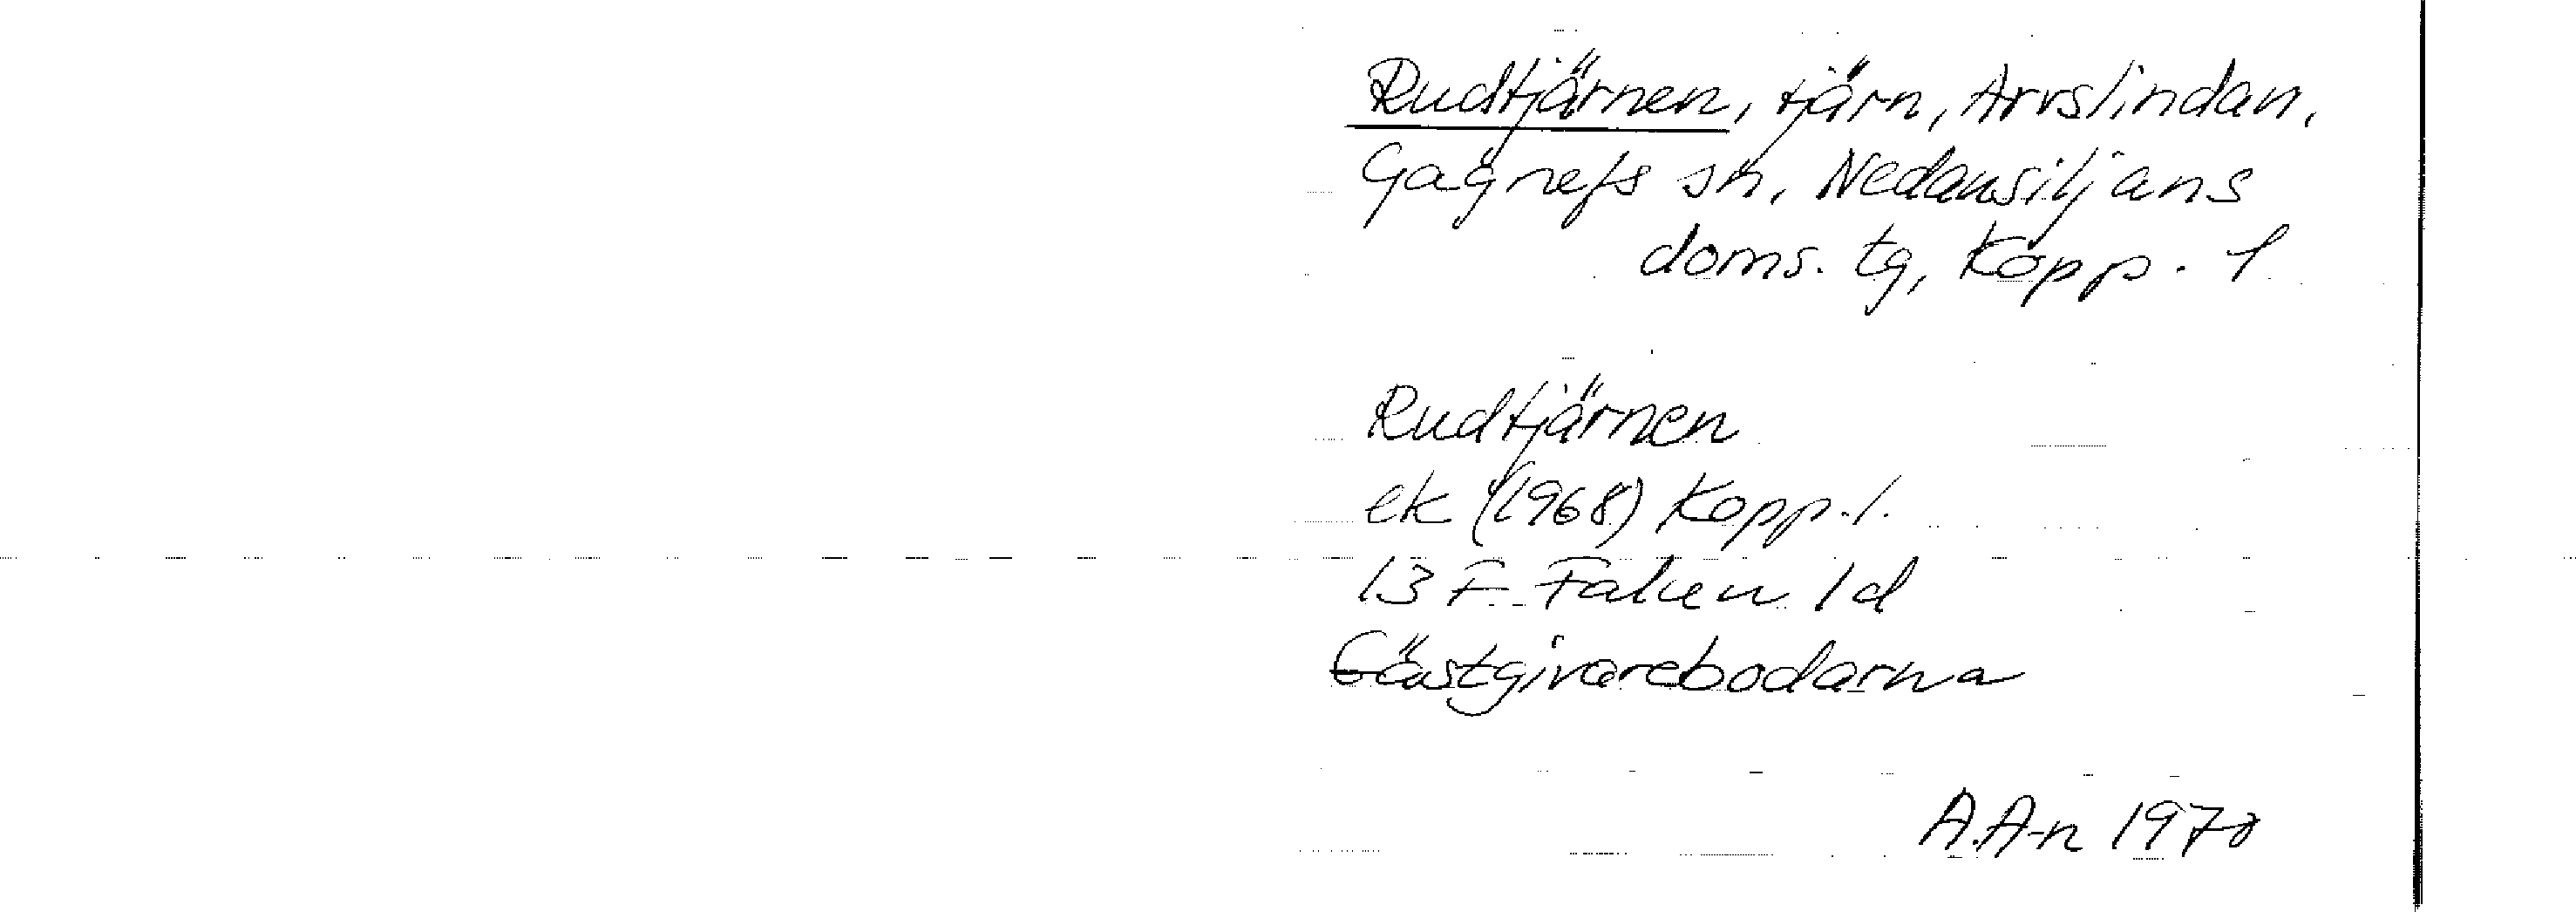 Rudtjärnen, tjärn, Arvslindan,
Gagnefs sn, Nedansiljans
doms. tg, Kopp. l
Rudtjärnen
ek (1968) Kopp. l.
13 F Falun 1d
Gästgivarebodarna
A.A-n 1970